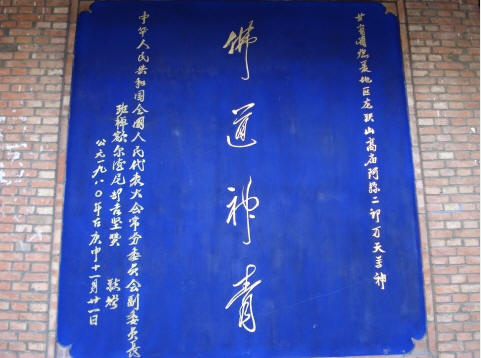 地区龙 山高庙阿弥二郎万天尊神
佛道神青
中华人民共和国全国人民代表大会常务委员会副委员长
班禅额尔德尼却吉坚赞 敬赠
公元一九八〇年 庚申十一月廿一日